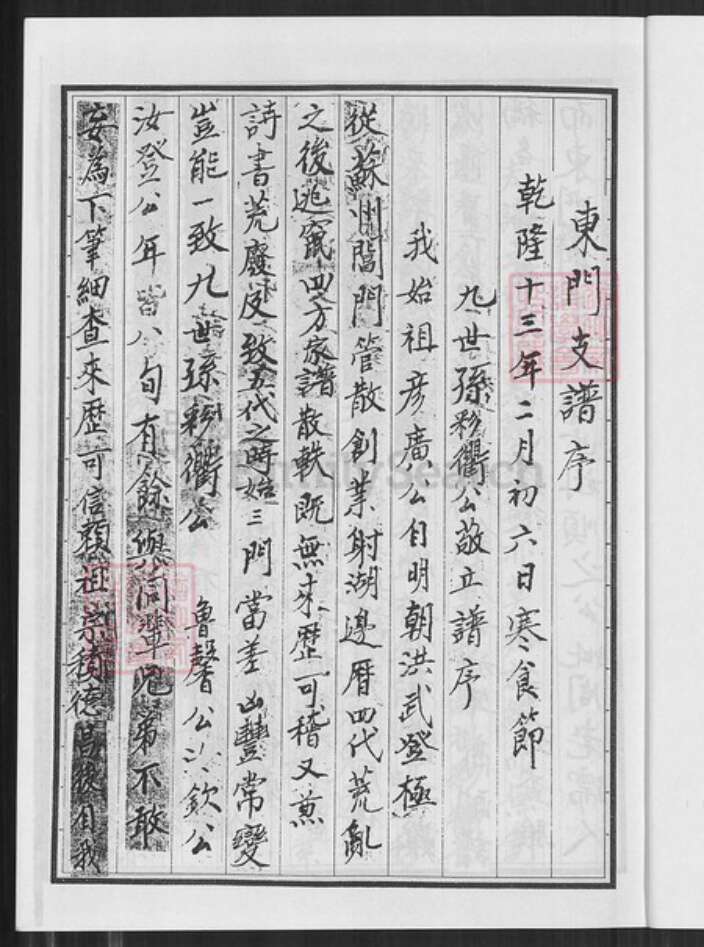 東門支譜序
乾隆十三年二月初六日寒食節
九世孫彩衢公敬立譜序
我始祖彥廣公自明朝洪武登極
從蘇州閶門管散創業射湖邊曆四代荒亂
之後逃竄四方家譜散軼既無來歷可稽又兼
詩書荒廢及致五代之時始三門當差凶豐常變
豈能一致九世孫彩衢公 魯馨公 欽公
汝登公年皆八旬有餘與同輩兄弟不敢
妄為下筆細查來歷可信賴祖宗積德髙後自我
FamilySearch